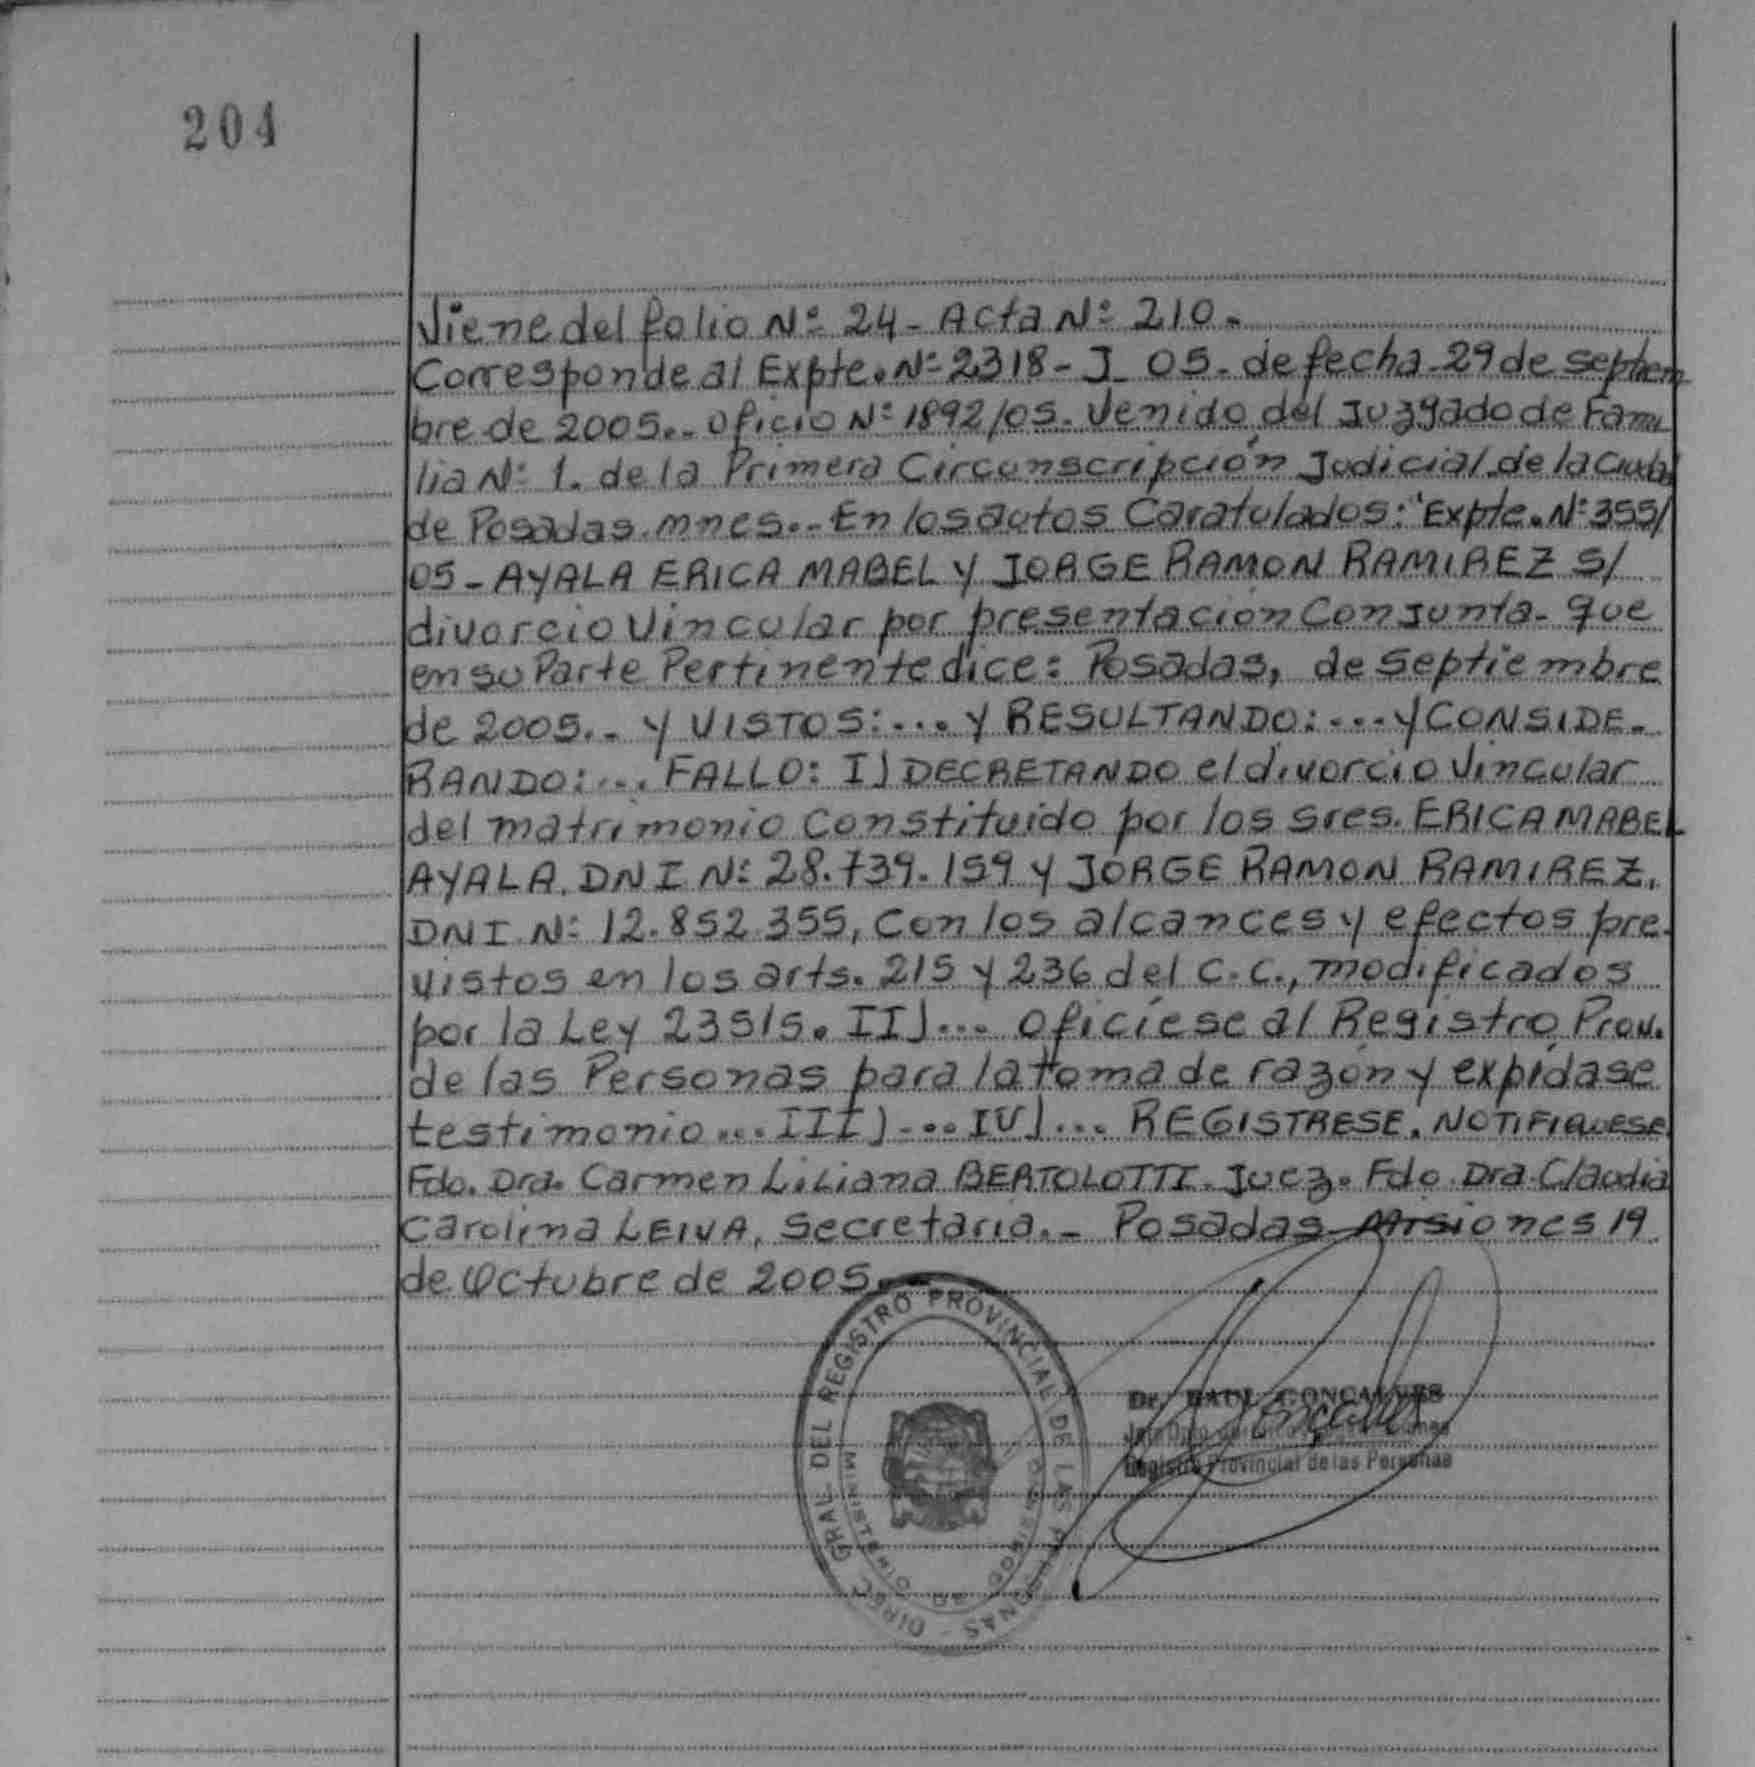 204
Viene del folio Nº 24 - Acta Nº 210.
Corresponde al Expte. Nº 2318 - J - 05 - de fecha 29 de septiem
bre de 2005.- oficio Nº 1892/05. Venido del Juzgado de Fami
lia Nº 1. de la Primera Circunscripción Judicial de la Ciudad
de Posadas. mnes.- En los autos Caratulados: "Expte. Nº 355/
05 - AYALA ERICA MABEL Y JORGE RAMON RAMIREZ S/
divorcio Vincular por presentación Conjunta - que
en su Parte Pertinente dice: Posadas, de septiembre
de 2005.- Y VISTOS:... Y RESULTANDO:... Y CONSIDE-
RANDO:... FALLO: I) DECRETANDO el divorcio Vincular
del matrimonio Constituido por los sres. ERICA MABEL
AYALA. DNI Nº 28.739.159 y JORGE RAMON RAMIREZ.
DNI Nº 12.852.355, Con los alcances y efectos pre-
vistos en los arts. 215 y 236 del C.C., modificados
por la Ley 23515. II)... Ofíciese al Registro Prov.
de las Personas para la toma de razón y expídase
testimonio... III)... IV)... REGISTRESE. NOTIFIQUESE.
Fdo. Dra. Carmen Liliana BERTOLOTTI. Juez. Fdo. Dra. Claudia
Carolina LEIVA, secretaria.- Posadas Misiones 19
de Octubre de 2005.-
DIREC. GRAL. DEL REGISTRO PROVINCIAL DE LAS PERSONAS
MINISTERIO DE GOBIERNO
Dr. RAUL GONCALVES
Registro Provincial de las Personas